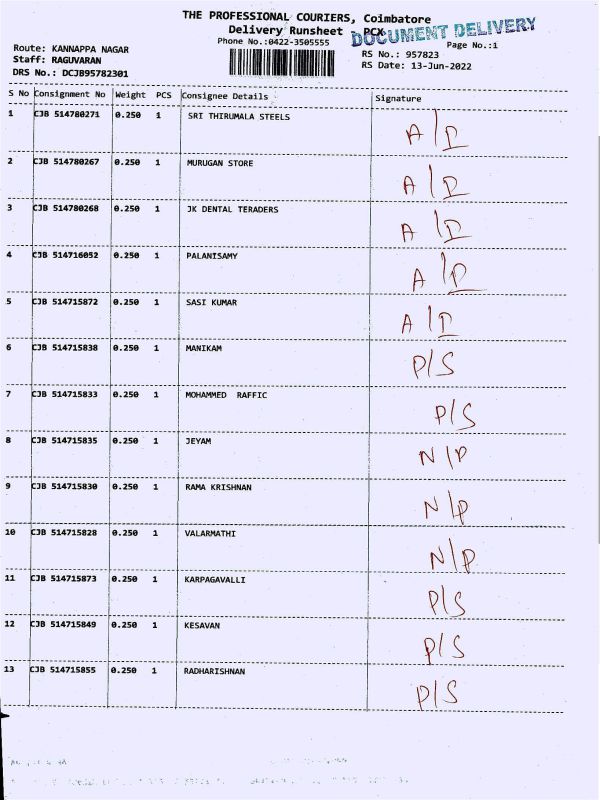 THE PROFESSIONAL COURIERS, Coimbatore
Delivery Runsheet - PCX
DOCUMENT DELIVERY
Phone No.:0422-3505555
Page No.:1
Route: KANNAPPA NAGAR
RS No.: 957823
Staff: RAGUVARAN
RS Date: 13-Jun-2022
DRS No.: DCJB95782301
S No Consignment No Weight PCS Consignee Details Signature
1 CJB 514780271 0.250 1 SRI THIRUMALA STEELS A/D
2 CJB 514780267 0.250 1 MURUGAN STORE A/D
3 CJB 514780268 0.250 1 JK DENTAL TERADERS A/D
4 CJB 514716052 0.250 1 PALANISAMY A/D
5 CJB 514715872 0.250 1 SASI KUMAR A/D
6 CJB 514715838 0.250 1 MANIKAM P/S
7 CJB 514715833 0.250 1 MOHAMMED RAFFIC P/S
8 CJB 514715835 0.250 1 JEYAM N/P
9 CJB 514715830 0.250 1 RAMA KRISHNAN N/P
10 CJB 514715828 0.250 1 VALARMATHI N/P
11 CJB 514715873 0.250 1 KARPAGAVALLI P/S
12 CJB 514715849 0.250 1 KESAVAN P/S
13 CJB 514715855 0.250 1 RADHARISHNAN P/S